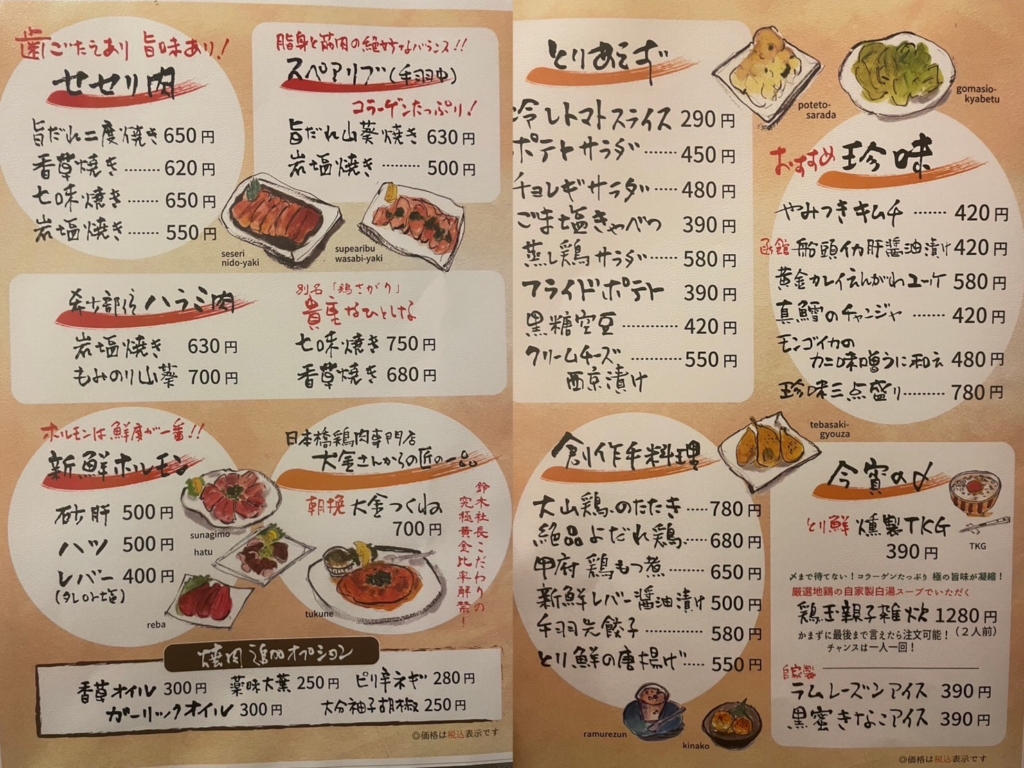 歯ごたえあり 旨味あり!
セセリ肉
旨だれ二度焼き 650円
香草焼き ……… 620円
七味焼き ……… 650円
岩塩焼き ……… 550円
脂身と筋肉の絶妙なバランス!!
スペアリブ(手羽中)
コラーゲンたっぷり!
旨だれ山葵焼き 630円
岩塩焼き ……… 500円
seseri
nido-yaki
supearibu
wasabi-yaki
希少部位 ハラミ肉
岩塩焼き 630円
もみのり山葵 700円
別名「鶏さがり」
貴重なひとしな
七味焼き 750円
香草焼き 680円
ホルモンは鮮度が一番!!
新鮮ホルモン
砂肝 500円
ハツ 500円
レバー 400円
(タレor塩)
sunagimo
hatu
reba
日本橋鶏肉専門店
大金さんからの匠の一品
朝挽 大金つくね
700円
鈴木社長こだわりの
究極黄金比率解禁!
tukune
焼肉追加オプション
香草オイル 300円 薬味大葉 250円 ピリ辛ネギ 280円
ガーリックオイル 300円 大分柚子胡椒 250円
◎価格は税込表示です
とりあえず
冷しトマトスライス 290円
ポテトサラダ …… 450円
チョレギサラダ …… 480円
ごま塩きゃべつ 390円
蒸し鶏サラダ …… 580円
フライドポテト 390円
黒糖空豆 ………… 420円
クリームチーズ ……… 550円
西京漬け
poteto-
sarada
gomasio-
kyabetu
おすすめ 珍味
やみつきキムチ …… 420円
函館 船頭イカ肝醤油漬け 420円
黄金カレイえんがわユーケ 580円
真鱈のチャンジャ …… 420円
モンゴイカの
カニ味噌うに和え 480円
珍味三点盛り …… 780円
創作手料理
tebasaki-
gyouza
大山鶏のたたき …… 780円
絶品よだれ鶏 …… 680円
甲府 鶏もつ煮 …… 650円
新鮮レバー醤油漬け 500円
手羽先餃子 ……… 580円
とり鮮の唐揚げ …… 550円
ramurezun
kinako
今宵の〆
とり鮮 燻製TKG
390円
TKG
〆まで待てない!コラーゲンたっぷり 極の旨味が凝縮!
厳選地鶏の自家製白湯スープでいただく
鶏玉親子雑炊 1280円
かまずに最後まで言えたら注文可能!(2人前)
チャンスは一人一回!
自家製
ラムレーズンアイス 390円
黒蜜きなこアイス 390円
◎価格は税込表示です